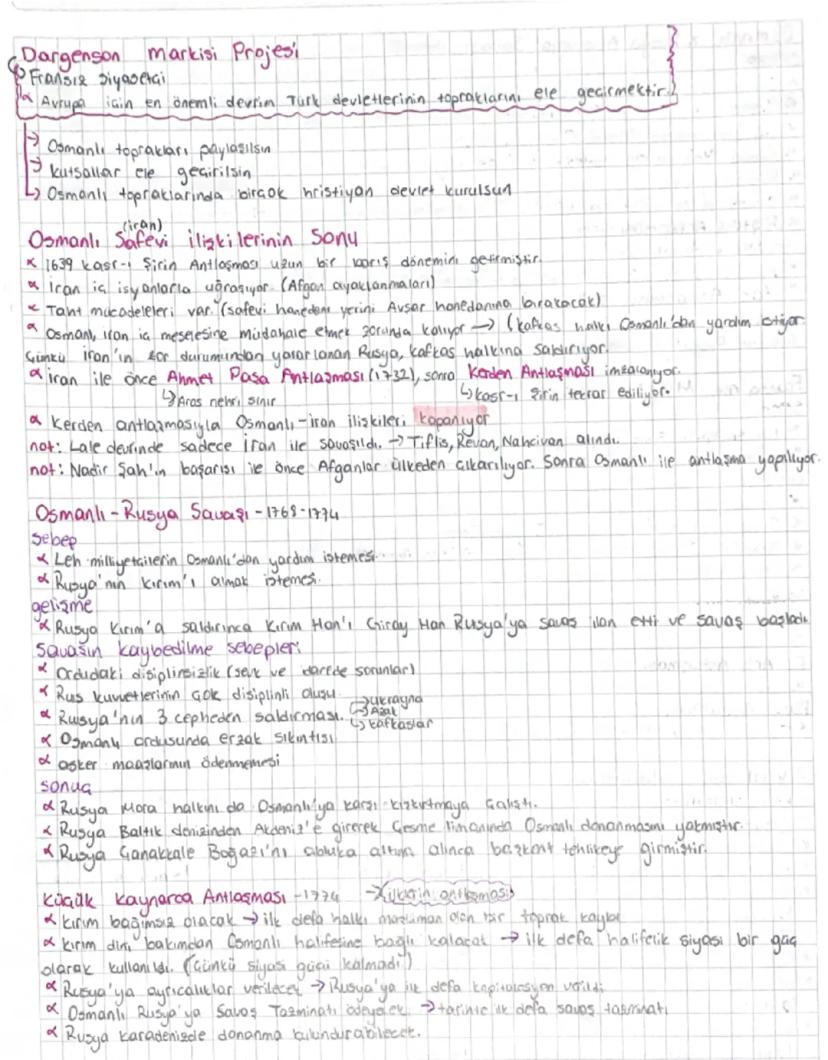 Dargenson markisi Projesi
Fransız siyasetçi
Avrupa için en önemli devrim Türk devletlerinin topraklarını ele geçirmektir.
→ Osmanlı toprakları paylaşılsın
→ kutsallar ele geçirilsin
→ Osmanlı topraklarında birçok hristiyan devlet kurulsun
(iran)
Osmanlı Safevi ilişkilerinin sonu
∝ 1639 kasr-ı Şirin Antlaşması uzun bir barış dönemini getirmiştir.
∝ iran iç isyanlarla uğraşıyor. (Afgan ayaklanmaları)
∝ Taht mücadeleleri var. (safevi hanedanı yerini Avşar hanedanına bırakacak)
∝ Osmanlı, iran iç meselesine müdahale etmek zorunda kalıyor → (kafkas halkı Osmanlı'dan yardım istiyor.
Çünkü iran'ın zor durumundan yararlanan Rusya, kafkas halkına saldırıyor.
∝ iran ile önce Ahmet Paşa Antlaşması (1732), sonra Kerden Antlaşması imzalanıyor.
↳ Aras nehri sınır ↳ kasr-ı Şirin tekrar ediliyor.
∝ Kerden antlaşmasıyla Osmanlı-iran ilişkileri kapanıyor
not: Lale devrinde sadece iran ile savaşıldı. → Tiflis, Revan, Nahcivan alındı.
not: Nadir Şah'ın başarısı ile önce Afganlar ülkeden çıkarılıyor. Sonra Osmanlı ile antlaşma yapılıyor.
Osmanlı-Rusya Savaşı - 1768-1774
sebep
∝ Leh milliyetçilerin Osmanlı'dan yardım istemesi
∝ Rusya'nın kırım'ı almak istemesi.
gelişme
∝ Rusya Kırım'a saldırınca Kırım Han'ı Giray Han Rusya'ya savaş ilan etti ve savaş başladı
Savaşın kaybedilme sebepleri
∝ Ordudaki disiplinsizlik (sevk ve idarede sorunlar)
∝ Rus kuvvetlerinin çok disiplinli oluşu
∝ Rusya'nın 3 cepheden saldırması. → ukrayna → Azak → kafkaslar
∝ Osmanlı ordusunda erzak sıkıntısı
∝ asker maaşlarının ödenmemesi
sonuç
∝ Rusya Mora halkını da Osmanlı'ya karşı kışkırtmaya çalıştı.
∝ Rusya Baltık denizinden Akdeniz'e girerek Çeşme limanında Osmanlı donanmasını yakmıştır.
∝ Rusya Çanakkale Boğazı'nı abluka altına alınca başkent tehlikeye girmiştir.
Küçük Kaynarca Antlaşması - 1774 → ilklerin antlaşması
∝ kırım bağımsız olacak → ilk defa halkı müslüman olan bir toprak kaybı
∝ kırım dini bakımdan Osmanlı halifesine bağlı kalacak → ilk defa halifelik siyasi bir güç
olarak kullanıldı. (Çünkü siyasi gücü kalmadı)
∝ Rusya'ya ayrıcalıklar verilecek → Rusya'ya ilk defa kapitülasyon verildi
∝ Osmanlı Rusya'ya Savaş Tazminatı ödeyecek → tarihte ilk defa savaş tazminatı
∝ Rusya karadenizde donanma bulundurabilecek.